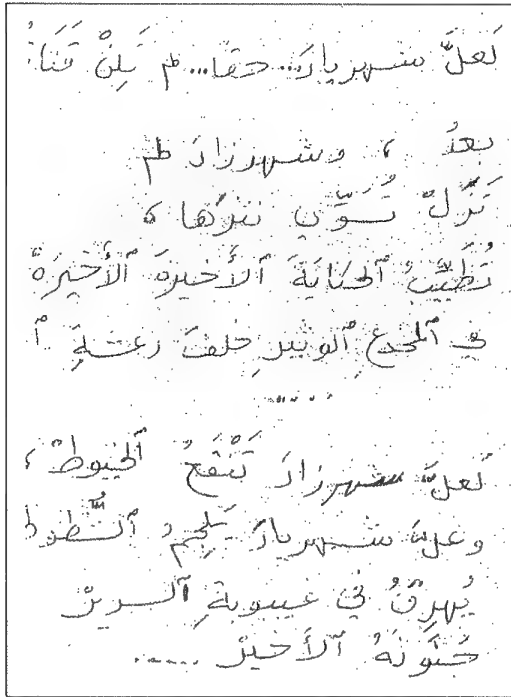 لَعلَّ شهريارَ... حقا... لم تَلِنْ قَنَا
بعدُ ، وشهرزادَ لم
تَزَلْ تُسَوِّي
تُطَيِّبُ الحكايةَ الأَخيرةَ الأَخيرَهْ
في المخدعِ الوثيرِ خلفَ رعشةِ ا
.....
لَعلَّ شهرزادَ الخيوطْ ،
وعلَّ شهريارَ يُلجِمُ
يُهرِقُ في غيبوبةِ السريرْ
جُنونَهُ الأَخيرْ .....